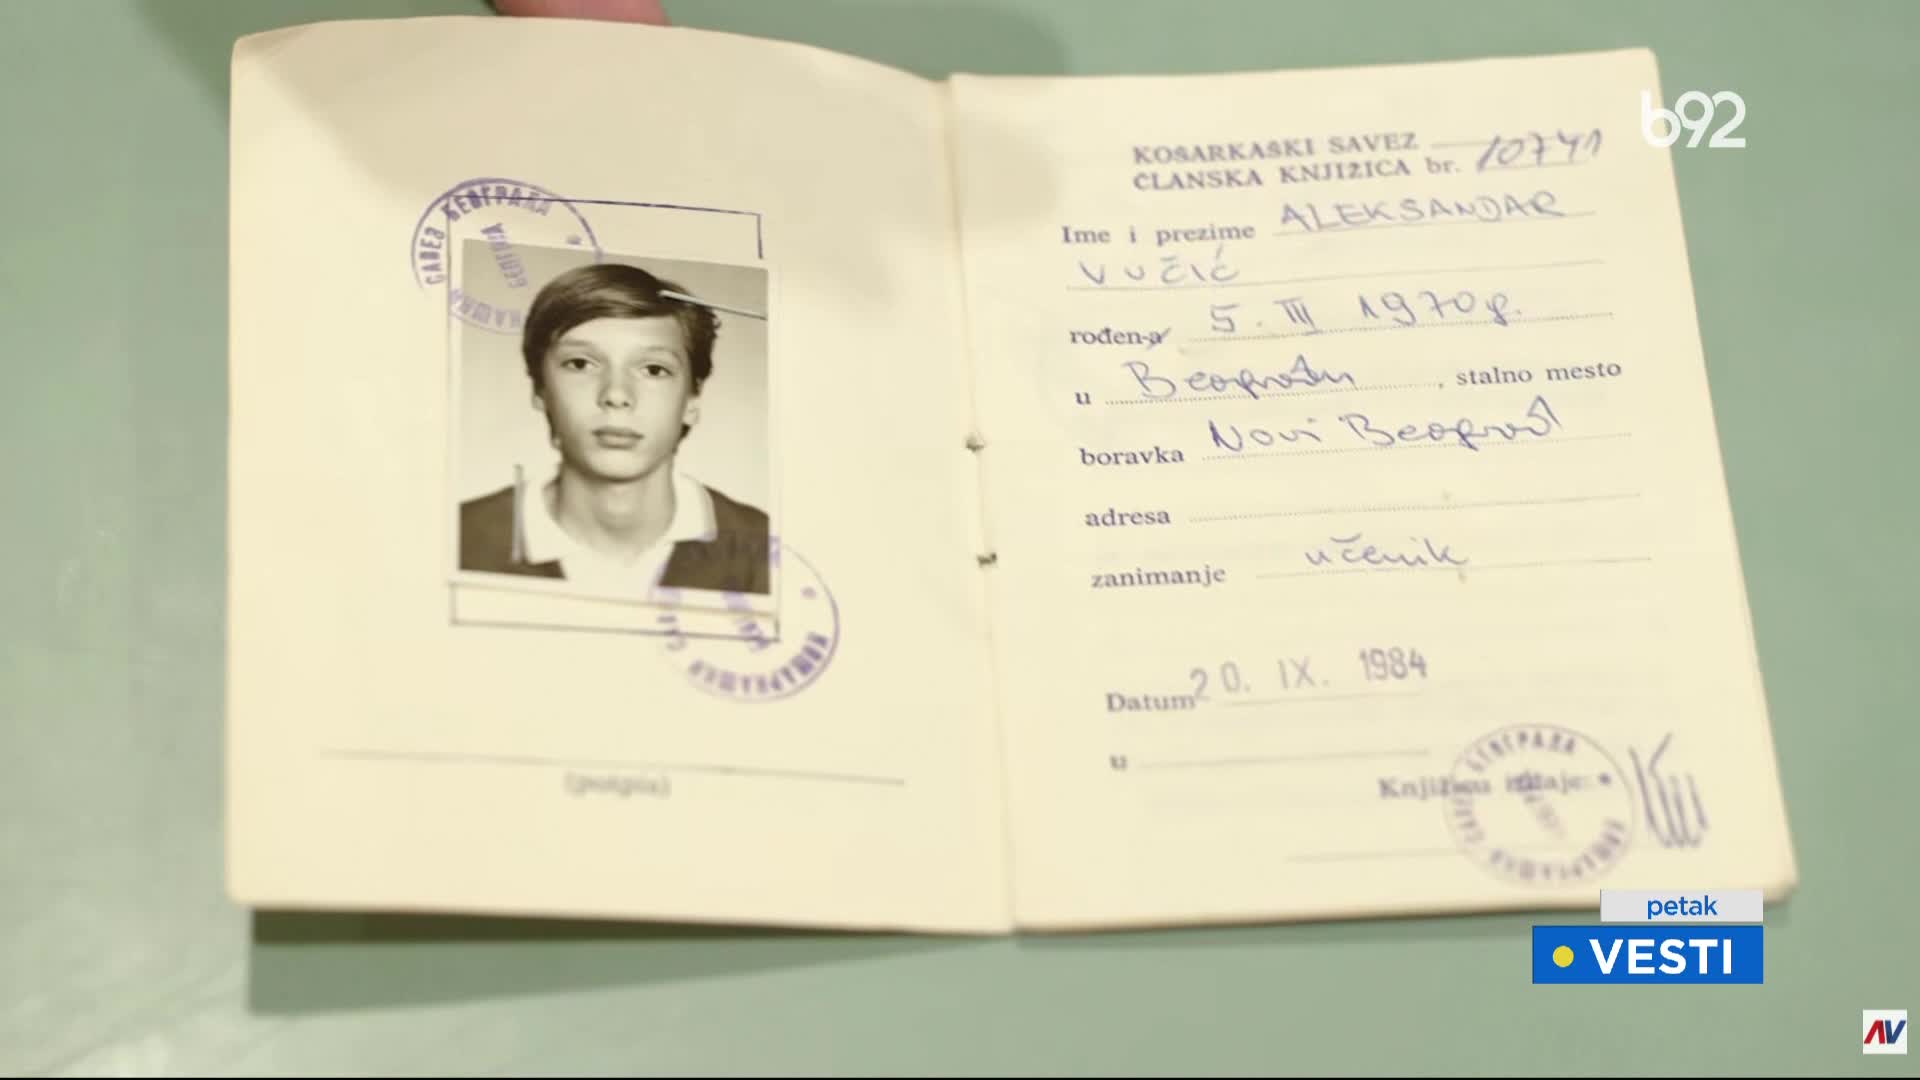 САВЕЗ БЕОГРАДА
(potpis)
b92
KOŠARKAŠKI SAVEZ
ČLANSKA KNJIŽICA br. 10741
Ime i prezime ALEKSANDAR
VUČIĆ
rođen-a 5. III 1970 g.
u Beogradu, stalno mesto
boravka Novi Beograd
adresa
zanimanje učenik
Datum 20. IX. 1984
u
Knjižicu izdaje:
petak
VESTI
AV